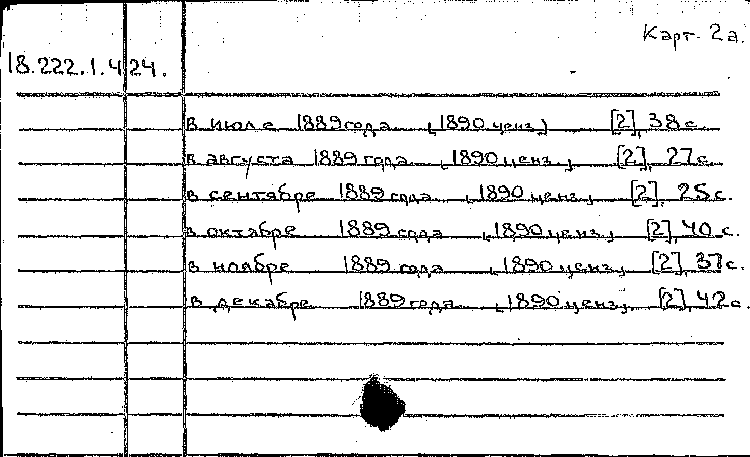 Карт. 2а.
18.222.1.424.
в июле 1889 года (1890 ценз.) [2], 38 с.
в августа 1889 года (1890 ценз.) [2], 27 с.
в сентябре 1889 года (1890 ценз.) [2], 25 с.
в октябре 1889 года (1890 ценз.) [2], 40 с.
в ноябре 1889 года (1890 ценз.) [2], 37 с.
в декабре 1889 года (1890 ценз.) [2], 42 с.